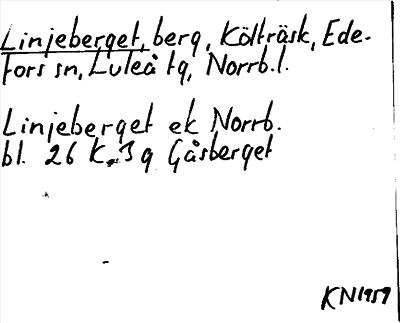 Linjeberget, berg, Költräsk, Ede-
fors sn, Luleå tg, Norrb.l.
Linjeberget ek Norrb.
bl. 26 K. 3 g Gåsberget
KN1959